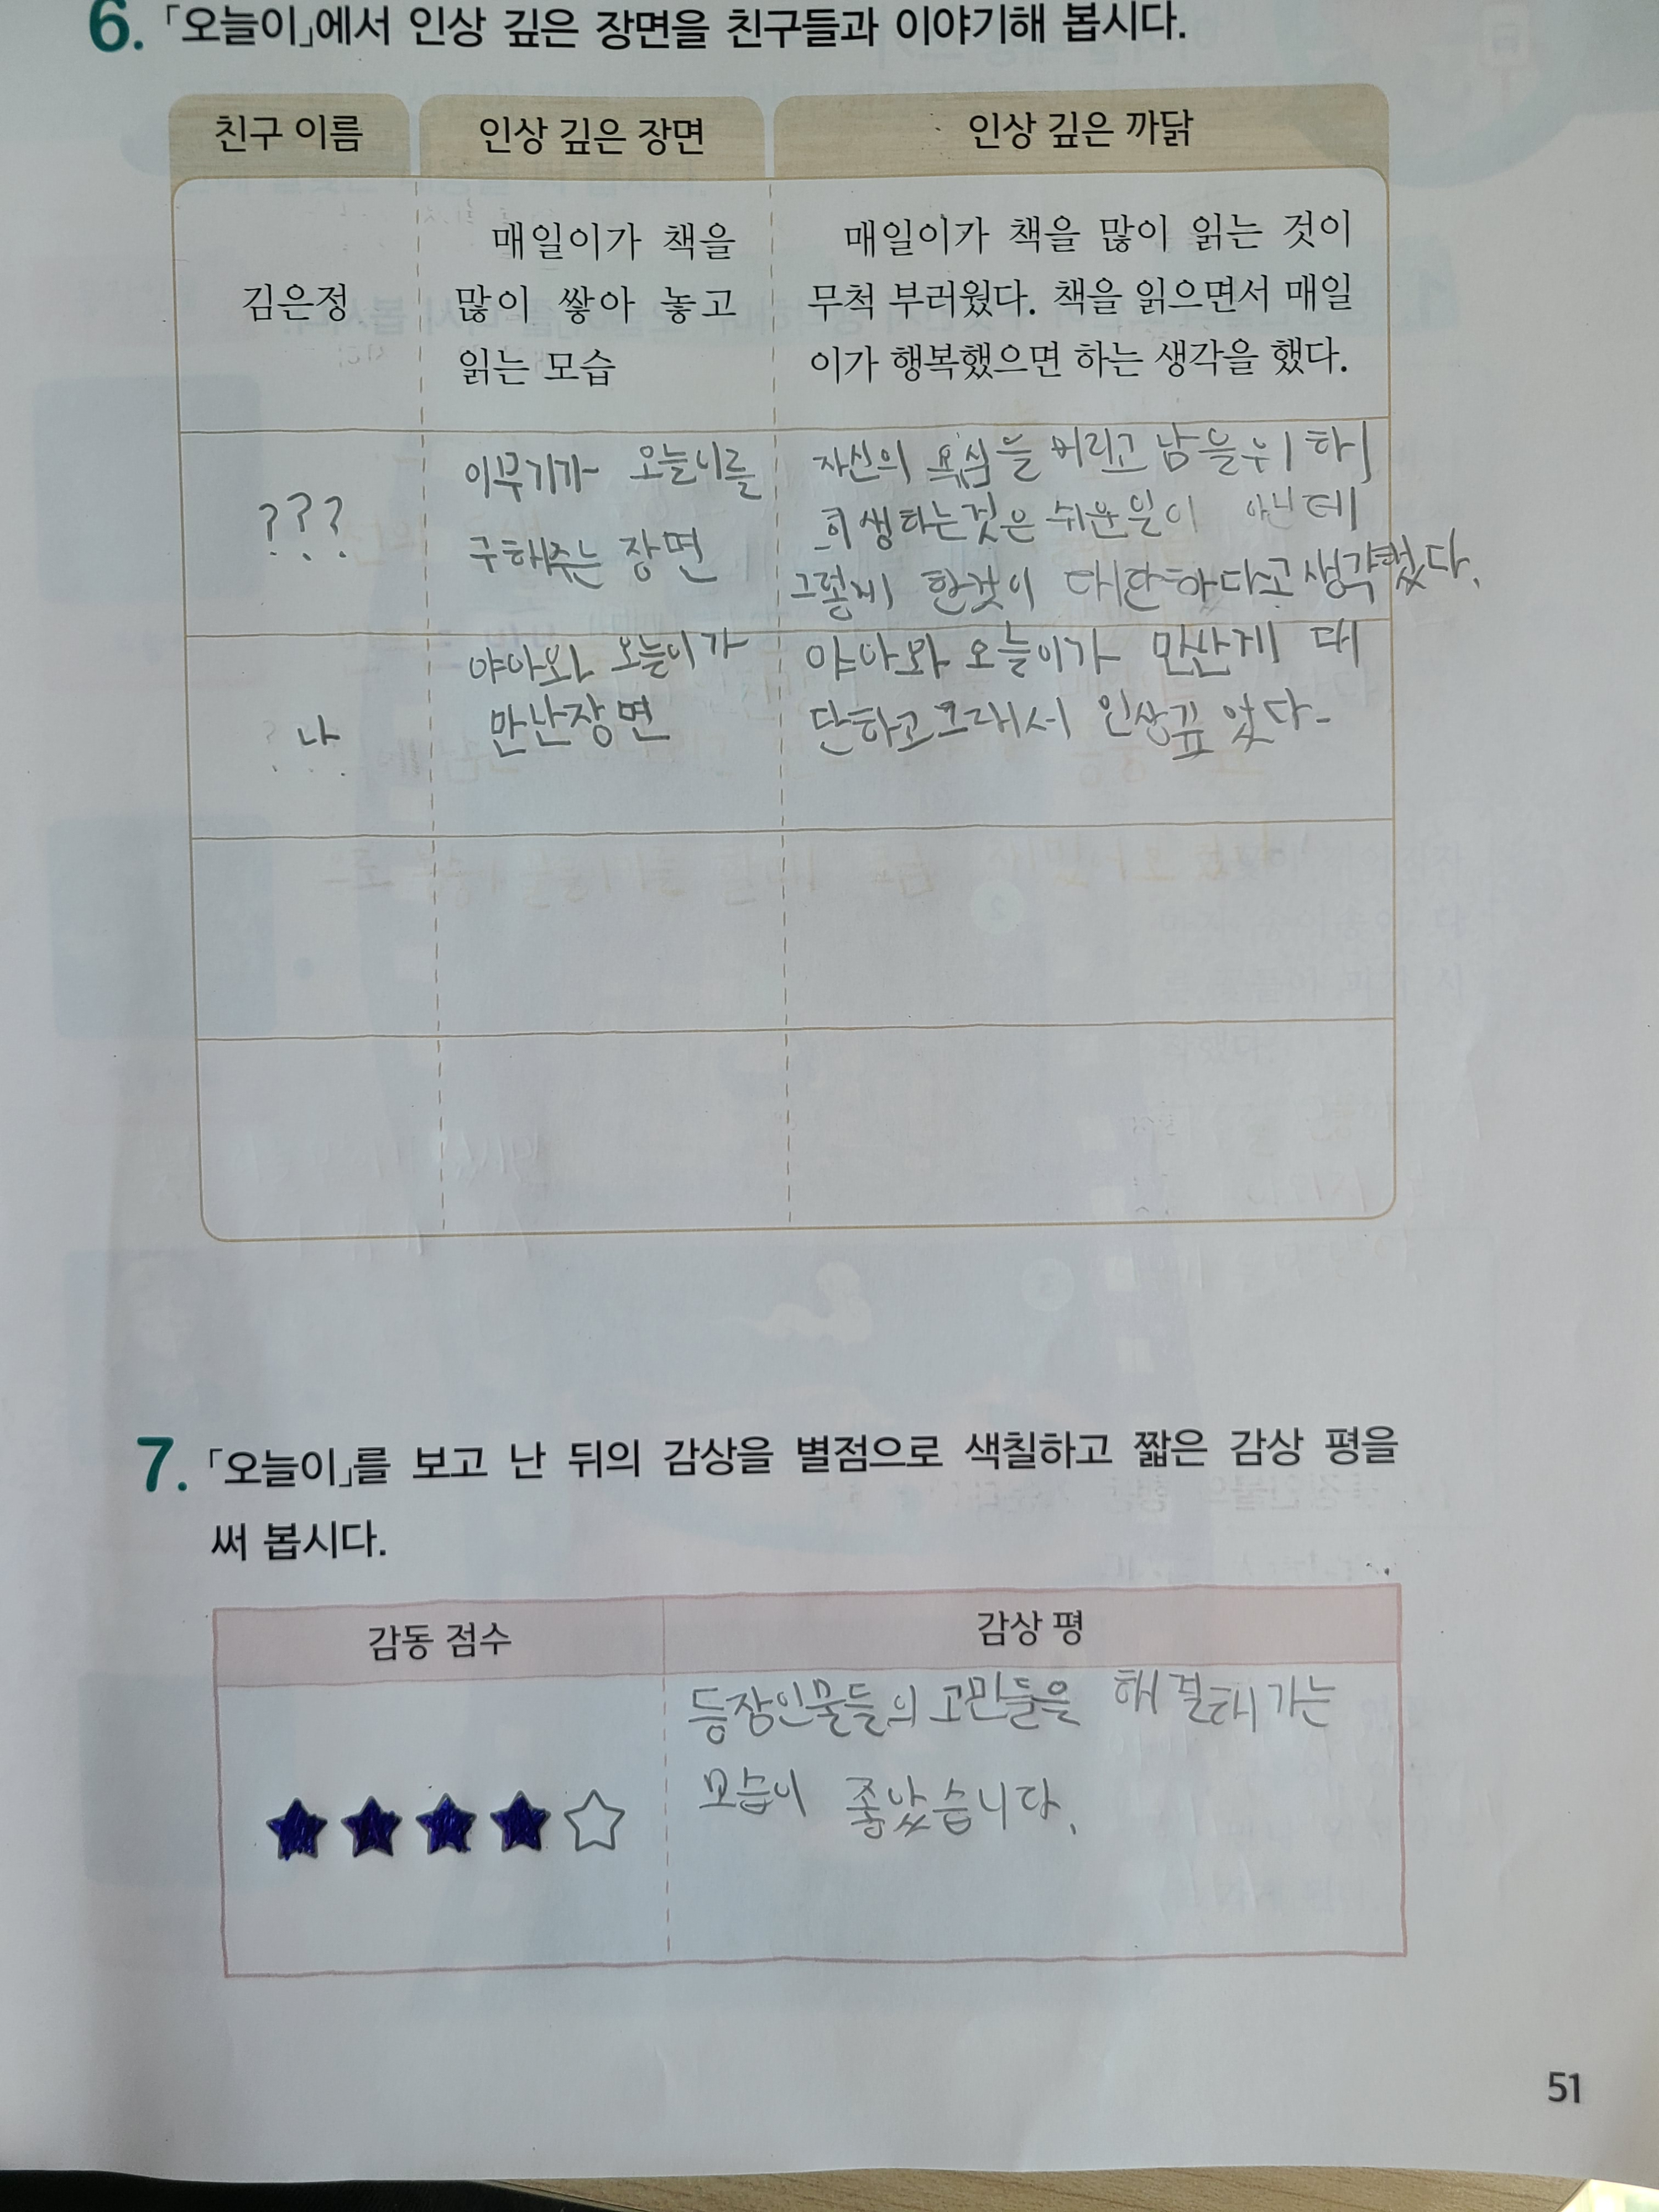 6. 「오늘이」에서 인상 깊은 장면을 친구들과 이야기해 봅시다.
친구 이름 인상 깊은 장면 인상 깊은 까닭
김은정
매일이가 책을
많이 쌓아 놓고
읽는 모습
매일이가 책을 많이 읽는 것이
무척 부러웠다. 책을 읽으면서 매일
이가 행복했으면 하는 생각을 했다.
???
이무기가 오늘이를
구해주는 장면
자신의 욕심을 버리고 남을 위하
희생하는것은 쉬운일이 아닌데
그렇게 한것이 대단하다고 생각했다.
나
야아와 오늘이가
만난장면
야아와 오늘이가 만난게 대
단하고 그래서 인상깊었다.
7. 「오늘이」를 보고 난 뒤의 감상을 별점으로 색칠하고 짧은 감상 평을
써 봅시다.
감동 점수 감상 평
등장인물들의 고민들을 해결해가는
모습이 좋았습니다.
51